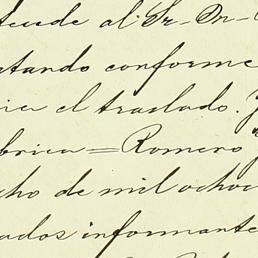 tende al Sr. Dn.
tando conforme
el traslado.
brica = Romero
cho de mil ochoc
ados informante